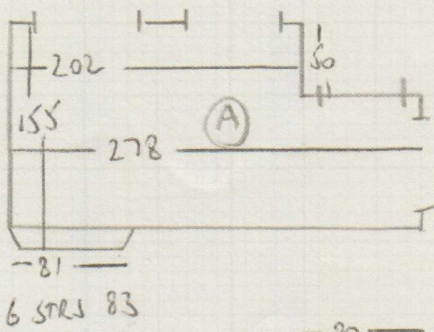 202
50
A
155
278
81
6 STRS 83